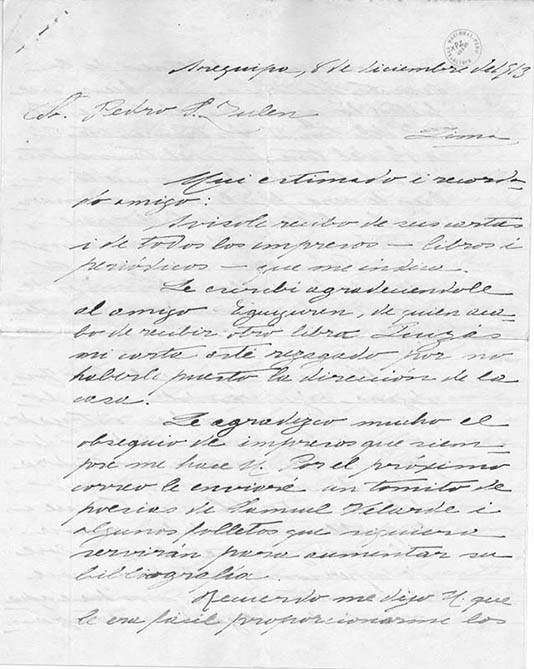 Arequipa, 8 de diciembre de 1913
Sr. Pedro S. Zulen
Lima
Mui estimado i recorda-
do amigo:
Avisole recibo de sus cartas
i de todos los impresos — libros i
periódicos — que me indica.
Le escribí agradeciendole
al amigo Eguiguren, de quien aca-
bo de recibir otro libro. Quizás
mi carta esté rezagado por no
haberle puesto la dirección de la
casa.
Le agradezco mucho el
obsequio de impresos que siem-
pre me hace U. Por el próximo
correo le enviaré un tomito de
poesías de Samuel Velarde i
algunos folletos que siquiera
servirán para aumentar su
bibliografía.
Recuerdo me dijo U. que
le era fácil proporcionarme los